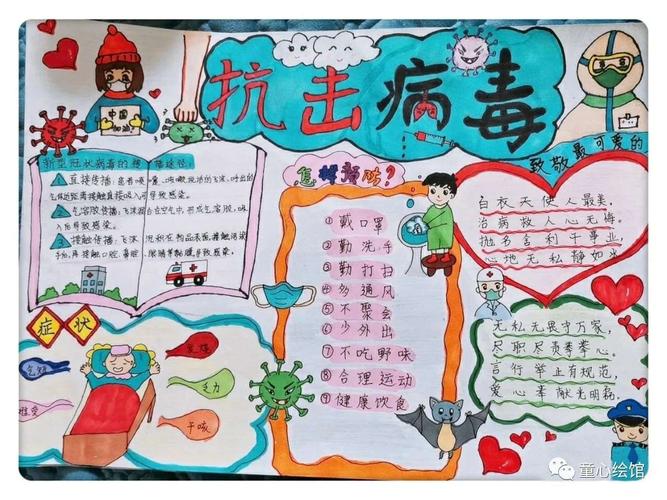 抗击病毒
中国
加油
致敬最可爱的
新型冠状病毒的 播途径:
1 直接传播:患者喷嚏、咳嗽、说话的飞沫,呼出的
气体近距离接触直接吸入可导致感染。
2 气溶胶传播:飞沫混合在空气中,形成气溶胶,吸
入后导致感染。
3 接触传播:飞沫沉积在物品表面,接触污染
手后,再接触口腔、鼻腔、眼睛等黏膜,导致感染。
症状
气短
发烧
乏力
干咳
怎样预防?
① 戴口罩
② 勤洗手
③ 勤打扫
④ 多通风
⑤ 不聚会
⑥ 少外出
⑦ 不吃野味
⑧ 合理运动
⑨ 健康饮食
白衣天使人最美,
治病救人心无悔。
抛名舍利干事业,
心地无私静如水
无私无畏守万家,
尽职尽责拳拳心。
言行举止有规范,
爱心奉献光明磊。
童心绘馆